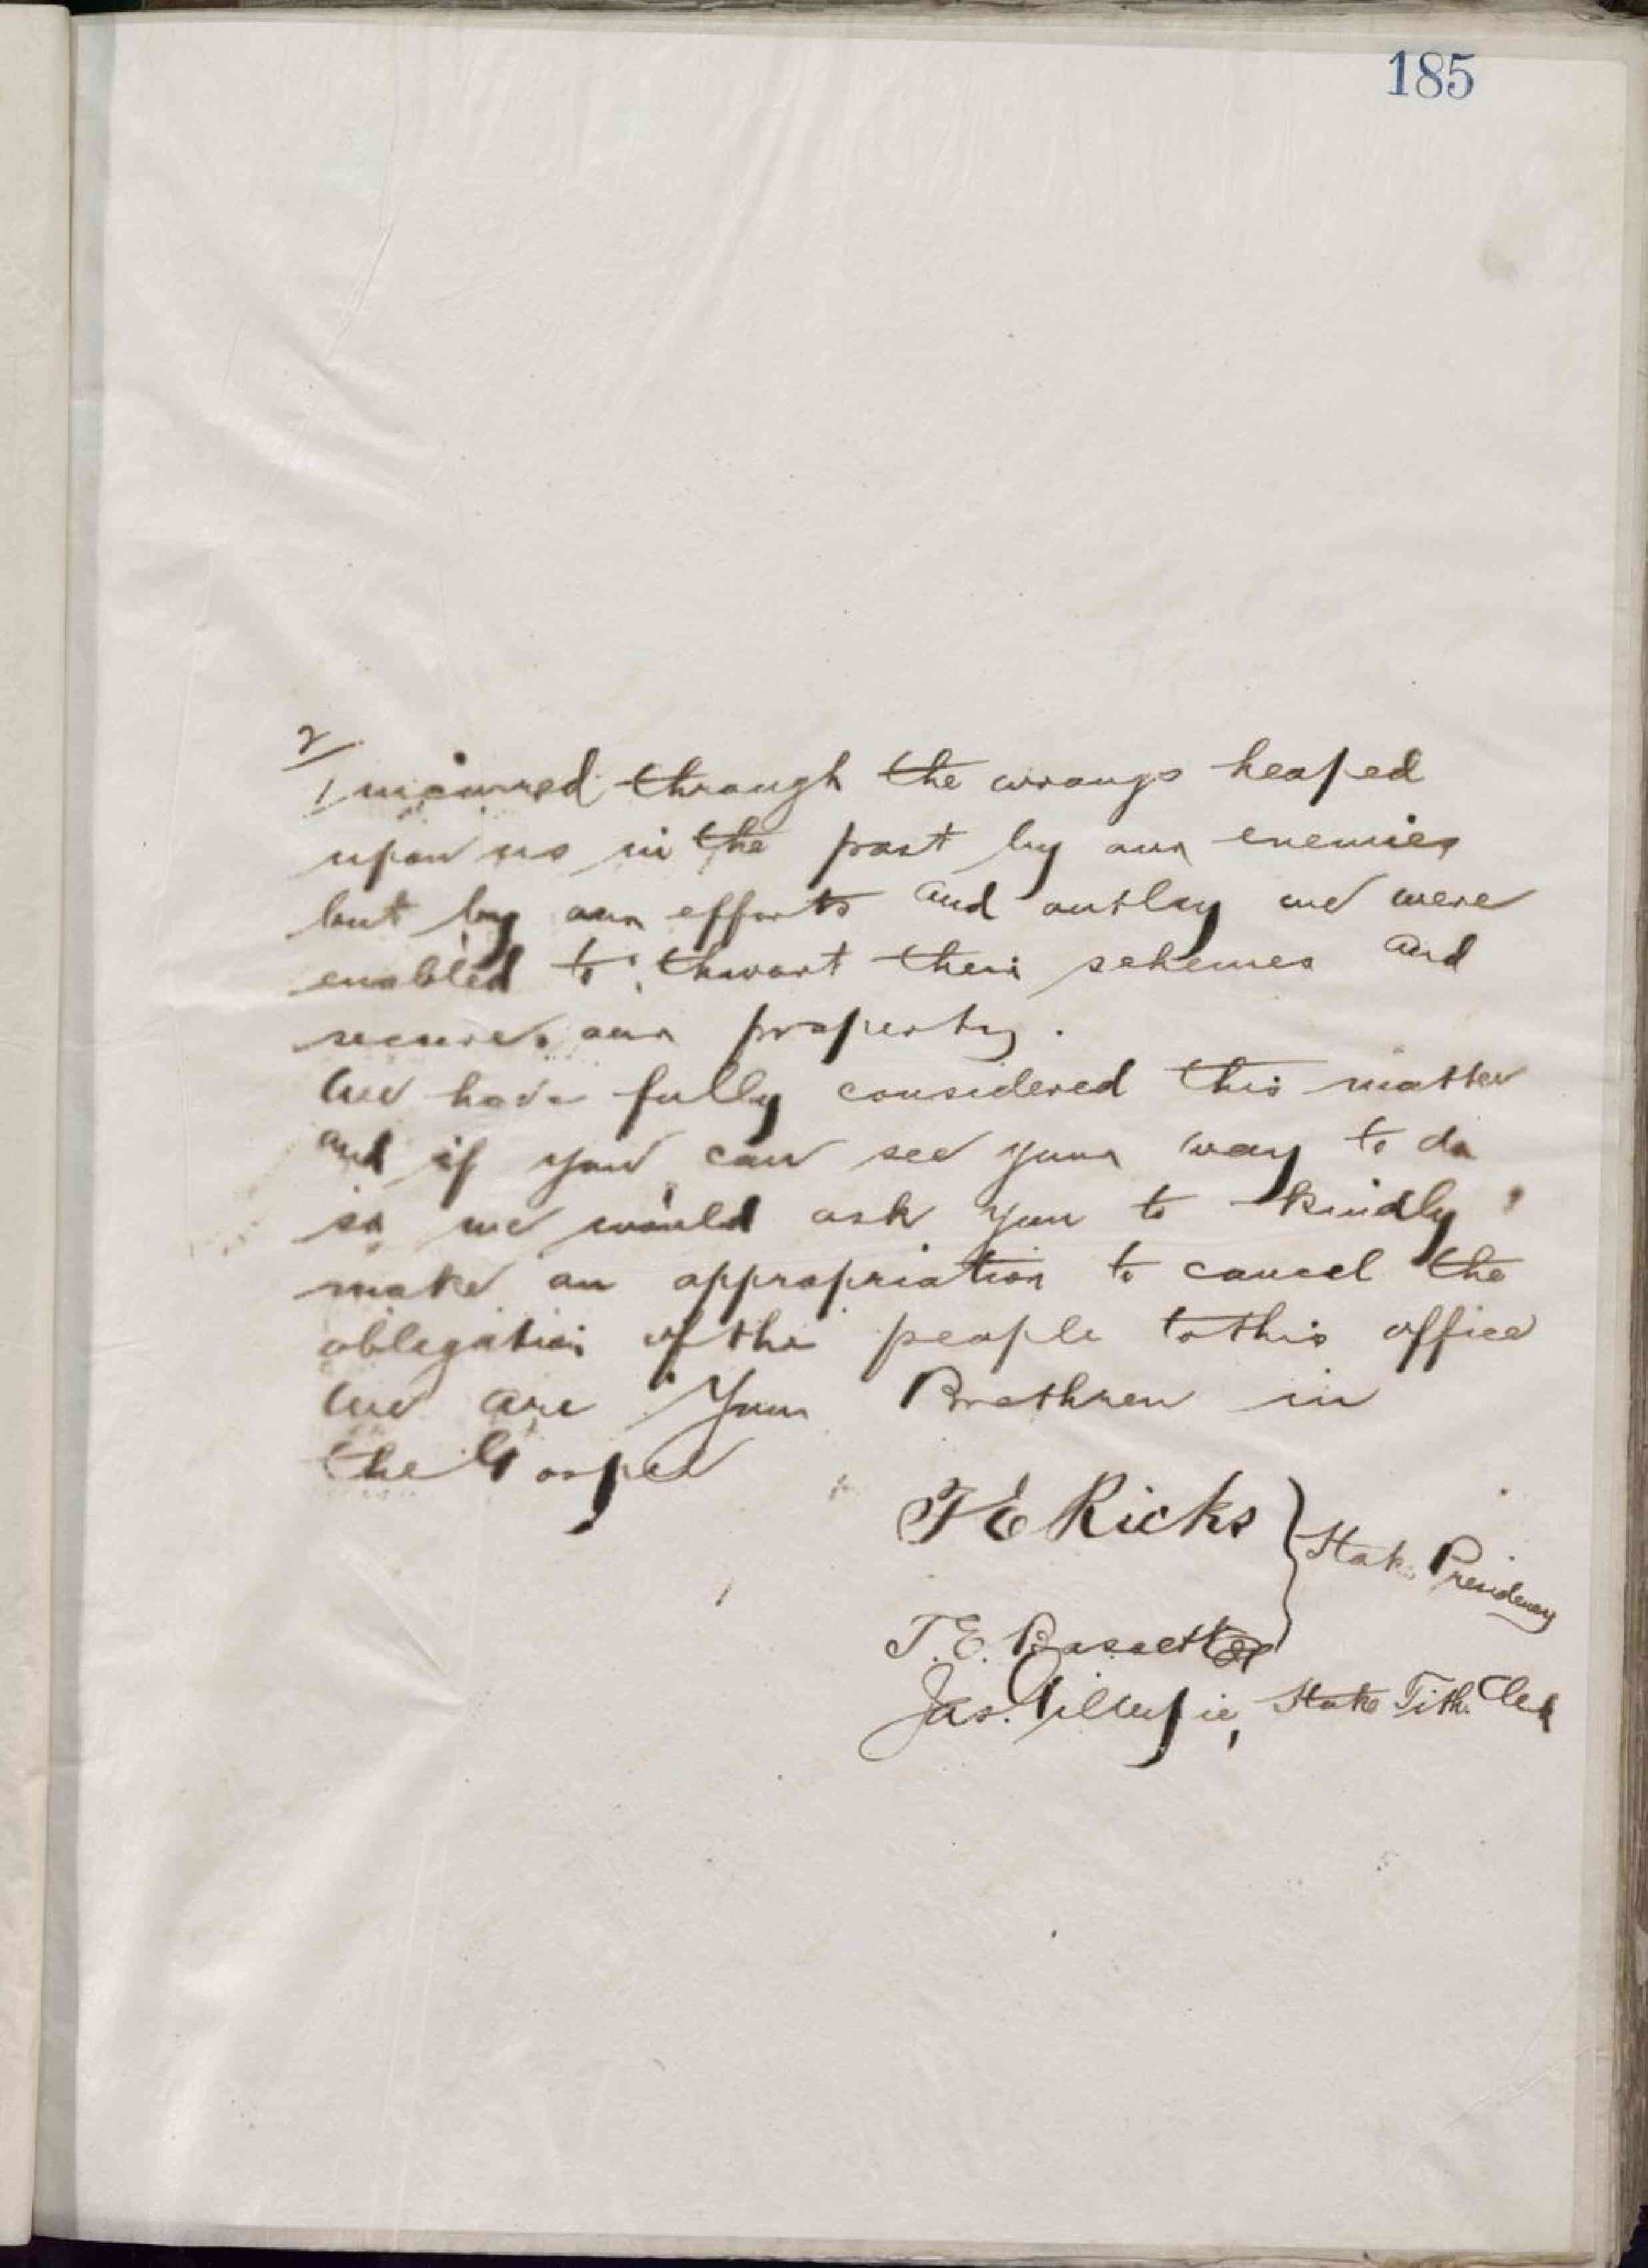 185
2
incurred through the wrongs heaped
upon us in the past by our enemies
but by our efforts and outlay we were
enabled to thwart their schemes and
secure our property.
We have fully considered this matter
and if you can see your way to do
so we would ask you to kindly
make an appropriation to cancel the
obligation of the people to this office
We are Your Brethren in
the Gospel
T E Ricks } Stake Presidency
T. E. Bassett
Jas. Gillespie, Stake Tith. Clek